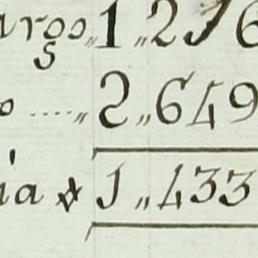 argos,, 1,,216
o ....,, 2,,649
ia $ 1,,433